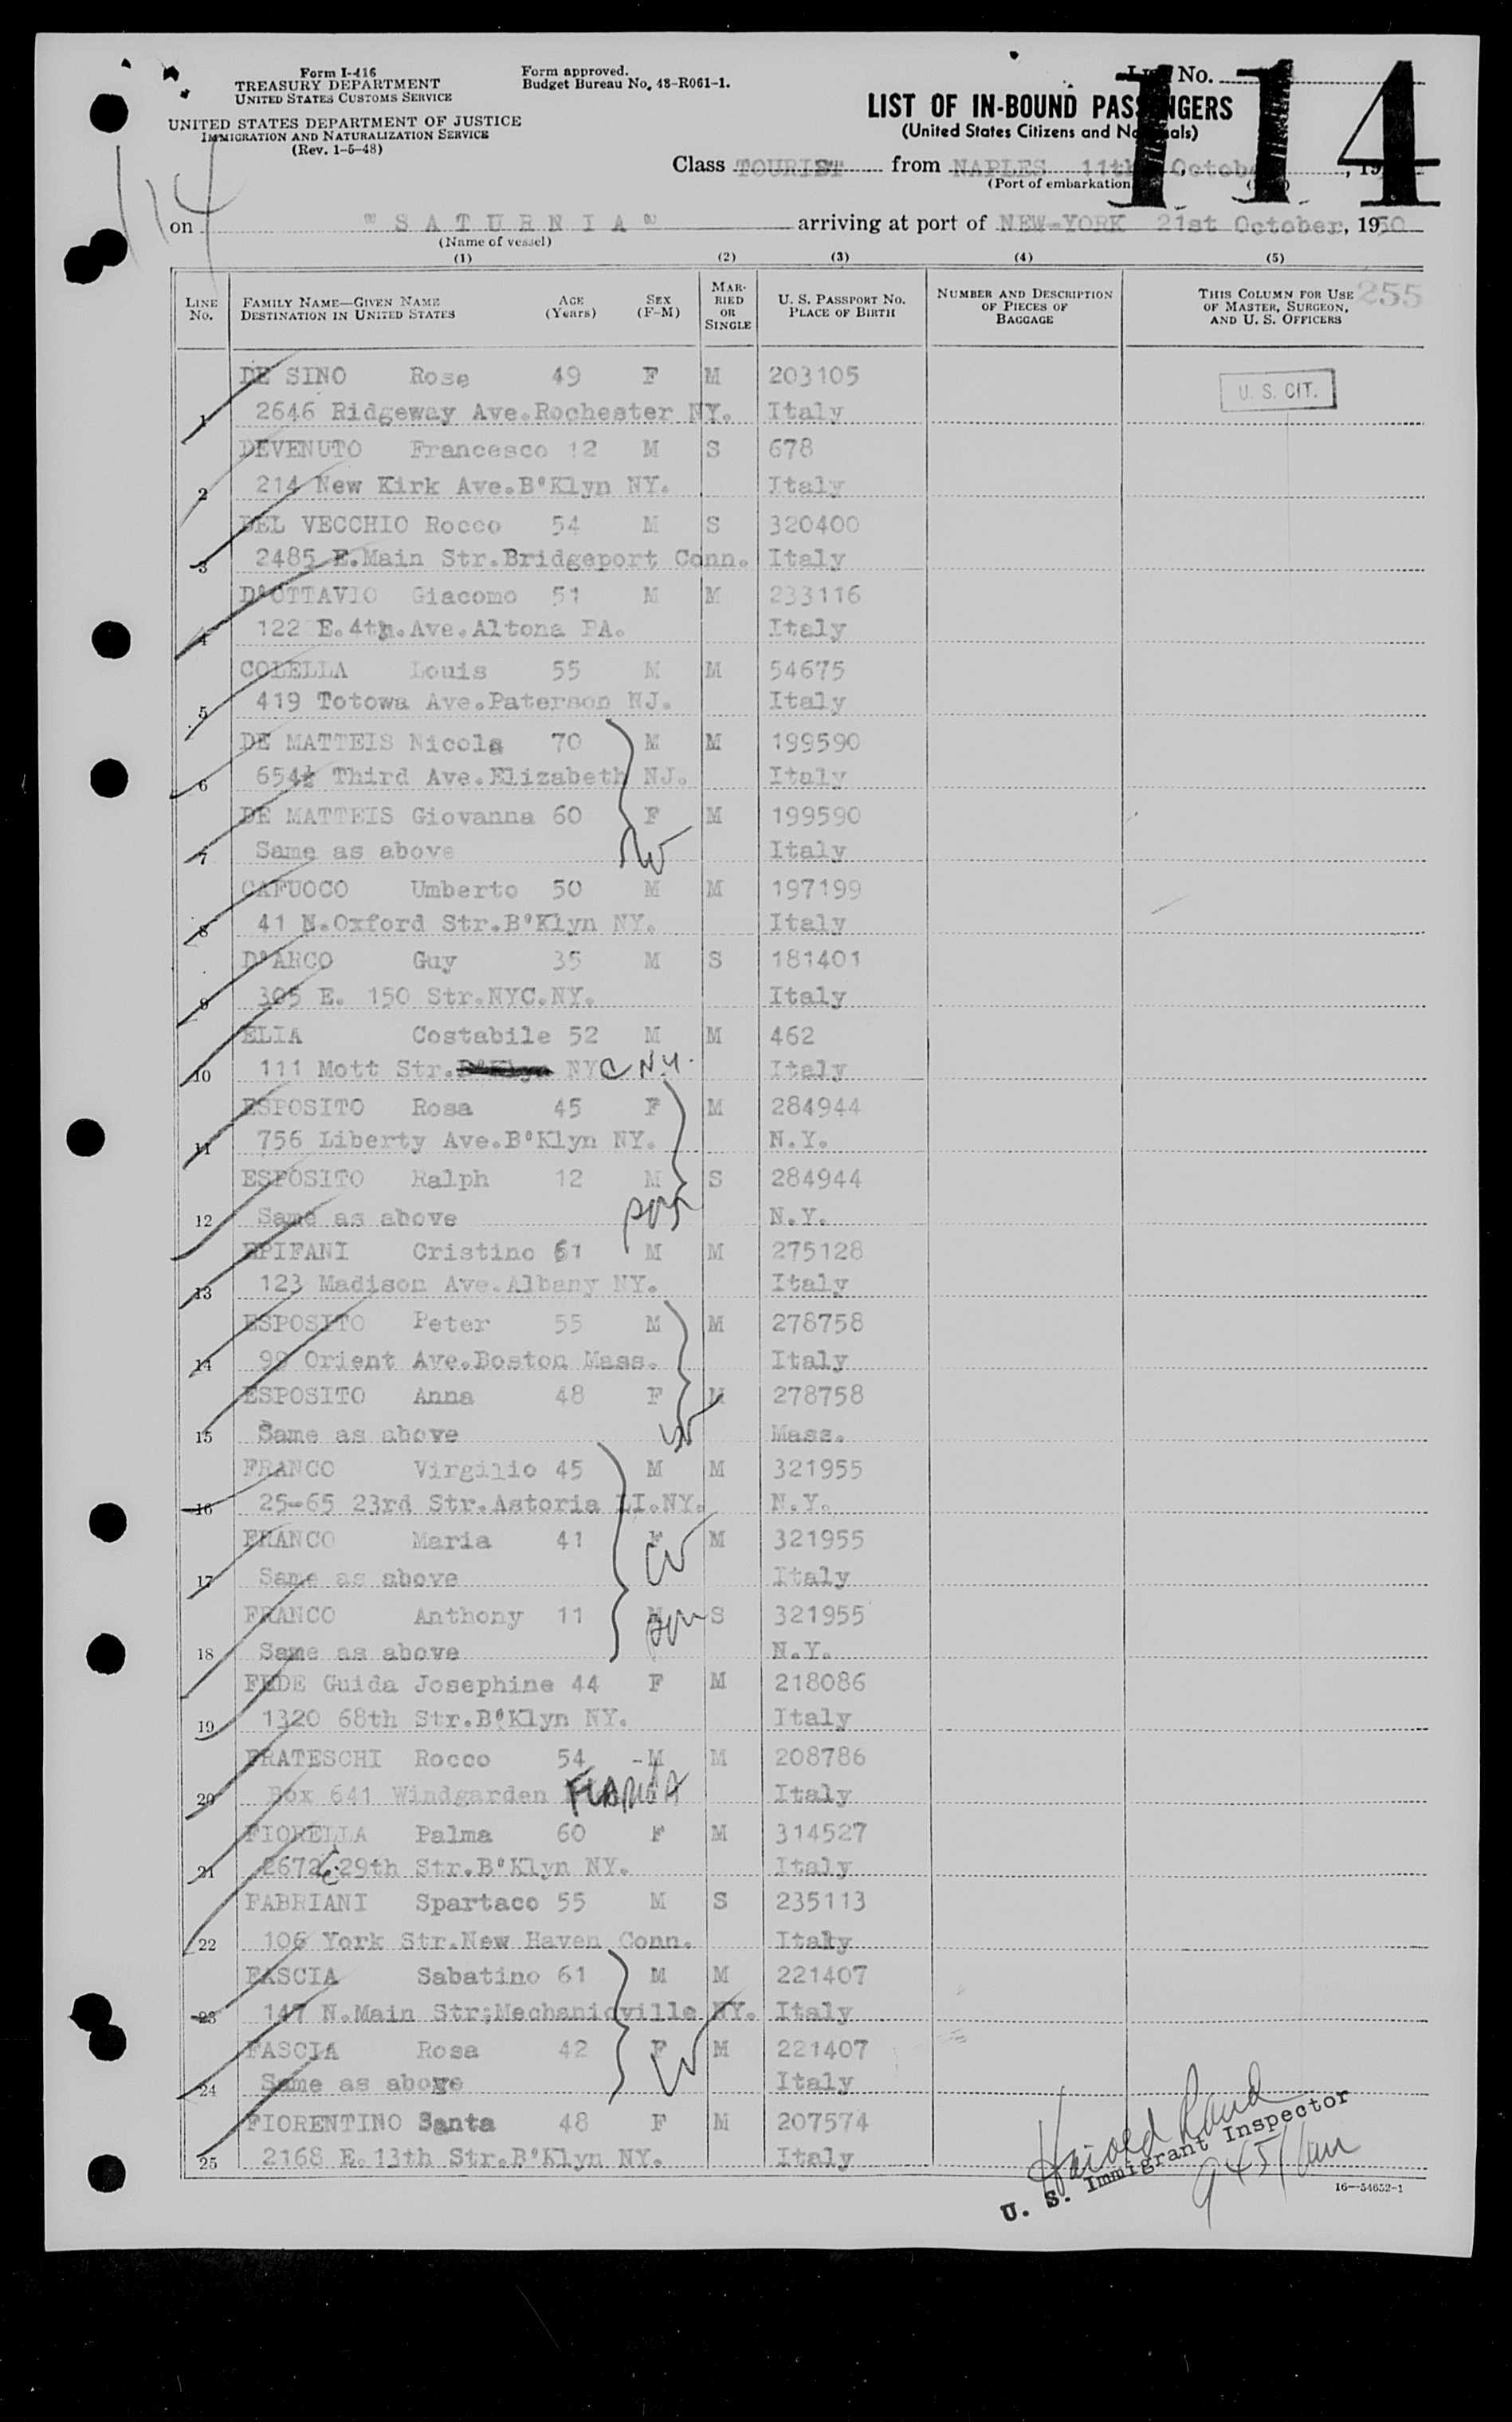 Form I-416
TREASURY DEPARTMENT
UNITED STATES CUSTOMS SERVICE
UNITED STATES DEPARTMENT OF JUSTICE
IMMIGRATION AND NATURALIZATION SERVICE
(Rev. 1-5-48)
Form approved.
Budget Bureau No. 48-R061-1.
No.
114
114
LIST OF IN-BOUND PASSENGERS
(United States Citizens and Nationals)
Class TOURIST from NAPLES 11th October, 19
(Port of embarkation)
on "SATURNIA" arriving at port of NEW-YORK 21st October, 1950
(Name of vessel)
(1) (2) (3) (4) (5)
LINE No.
FAMILY NAME—GIVEN NAME
DESTINATION IN UNITED STATES
AGE (Years)
SEX (F-M)
MARRIED OR SINGLE
U. S. PASSPORT NO.
PLACE OF BIRTH
NUMBER AND DESCRIPTION OF PIECES OF BAGGAGE
THIS COLUMN FOR USE OF MASTER, SURGEON, AND U. S. OFFICERS
255
DE SINO Rose 49 F M 203105
U. S. CIT.
1 2646 Ridgeway Ave.Rochester NY. Italy
DEVENUTO Francesco 12 M S 678
2 214 New Kirk Ave.B'Klyn NY. Italy
DEL VECCHIO Rocco 54 M S 320400
3 2485 E.Main Str.Bridgeport Conn. Italy
D'OTTAVIO Giacomo 51 M M 233116
4 122 E.4th.Ave.Altona PA. Italy
COLELLA Louis 55 M M 54675
5 419 Totowa Ave.Paterson NJ. Italy
DE MATTEIS Nicola 70 M M 199590
6 654½ Third Ave.Elizabeth NJ. Italy
DE MATTEIS Giovanna 60 F M 199590
7 Same as above Italy
CAFUOCO Umberto 50 M M 197199
8 41 N.Oxford Str.B'Klyn NY. Italy
D'ARCO Guy 35 M S 181401
9 305 E. 150 Str.NYC.NY. Italy
ELIA Costabile 52 M M 462
10 111 Mott Str. NYC N.Y. Italy
ESPOSITO Rosa 45 F M 284944
11 756 Liberty Ave.B'Klyn NY. N.Y.
ESPOSITO Ralph 12 M S 284944
12 Same as above N.Y.
EPIFANI Cristino 61 M M 275128
13 123 Madison Ave.Albany NY. Italy
ESPOSITO Peter 55 M M 278758
14 99 Orient Ave.Boston Mass. Italy
ESPOSITO Anna 48 F M 278758
15 Same as above Mass.
FRANCO Virgilio 45 M M 321955
16 25-65 23rd Str.Astoria LI.NY. N.Y.
FRANCO Maria 41 F M 321955
17 Same as above Italy
FRANCO Anthony 11 M S 321955
18 Same as above N.Y.
FEDE Guida Josephine 44 F M 218086
19 1320 68th Str.B'Klyn NY. Italy
FRATESCHI Rocco 54 -M M 208786
20 Box 641 Windgarden FLORIDA Italy
FIORELLA Palma 60 F M 314527
21 2672 E. 29th Str.B'Klyn NY. Italy
FABRIANI Spartaco 55 M S 235113
22 106 York Str.New Haven Conn. Italy
FASCIA Sabatino 61 M M 221407
23 147 N.Main Str;Mechanicville NY. Italy
FASCIA Rosa 42 F M 221407
24 Same as above Italy
FIORENTINO Santa 48 F M 207574
25 2168 E.13th Str.B'Klyn NY. Italy
Harold
U. S. Immigrant Inspector
16—54652-1